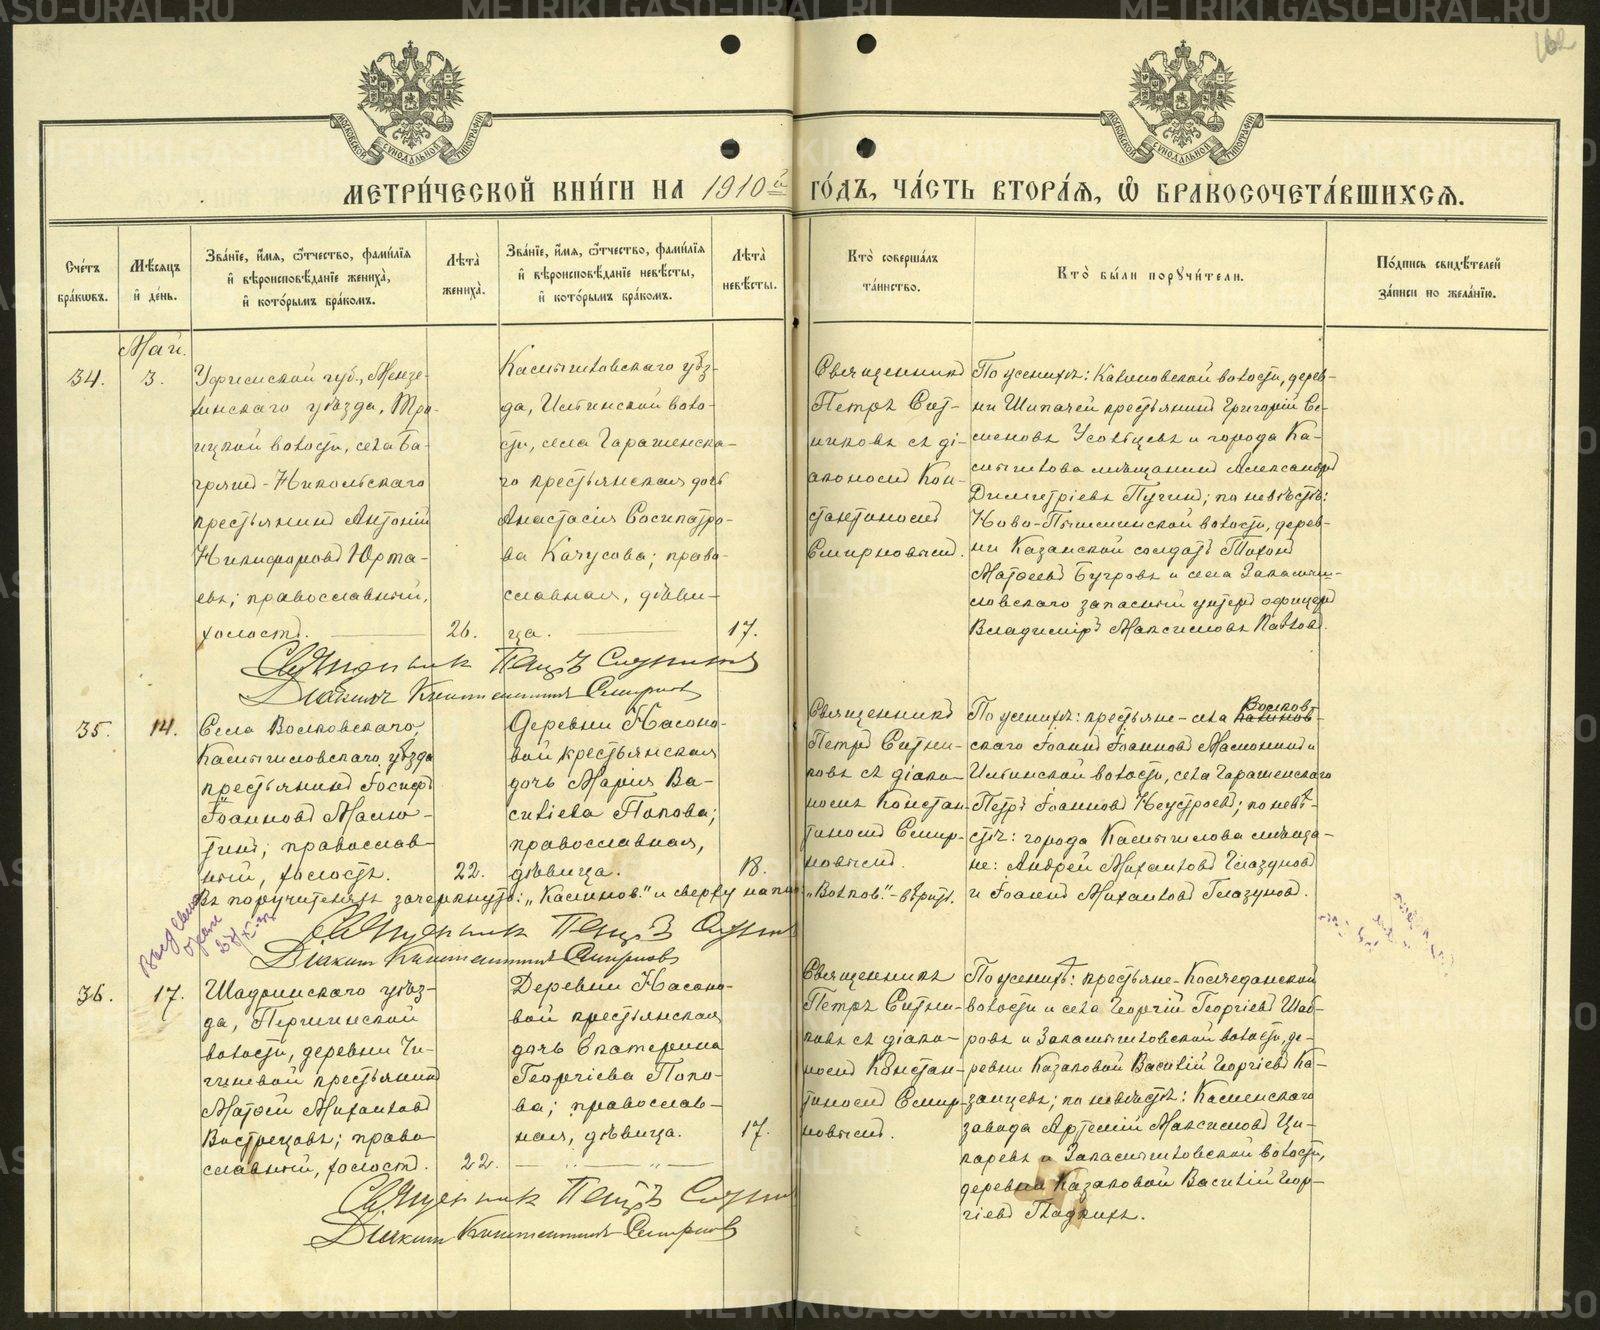 162
МОСКОВСКОЙ СѴНОДАЛЬНОЙ ТИПОГРАФІИ
МОСКОВСКОЙ СѴНОДАЛЬНОЙ ТИПОГРАФІИ
МЕТРИ́ЧЕСКОЙ КНИ́ГИ НА 1910й ГО́ДЪ, ЧА́СТЬ ВТОРА́Ѧ, Ѡ҆ БРАКОСОЧЕТА́ВШИХСѦ.
Сче́тъ
бра́кѡвъ.
Мѣ́сяцъ
и҆ де́нь.
Зва́нїе, и҆́мя, ѻ҆́тчество, фами́лїя
и҆ вѣроисповѣ́данїе жениха̀,
и҆ кото́рымъ бра́комъ.
Лѣ́та
жениха̀.
Зва́нїе, и҆́мя, ѻ҆́тчество, фами́лїя
и҆ вѣроисповѣ́данїе невѣ́сты,
и҆ кото́рымъ бра́комъ.
Лѣ́та
невѣ́сты.
Кто̀ соверша́лъ
та́инство.
Кто̀ бы́ли пору́чители.
По́дпись свидѣ́телей
за́писи по жела́нїю.
Май.
34.
3.
Уфимской губ., Мензе-
линскаго уѣзда, Тро-
ицкой волости, села Ба-
гряш-Никольскаго
крестьянинъ Антоній
Никифоровъ Юрта-
евъ; православный,
холостъ.
26.
Камышловскаго уѣз-
да, Ильинской воло-
сти, села Гарашенска-
го крестьянская дочь
Анастасія Сосипатро-
ва Качусова; право-
славная, дѣви-
ца.
17.
Священникъ
Петръ Ситни-
ковъ съ ді-
акономъ Кон-
стантиномъ
Смирновымъ.
По женихѣ: Калиновской волости, дерев-
ни Шипачей крестьянинъ Григорій Се-
меновъ Усольцевъ и города Ка-
мышлова мѣщанинъ Александръ
Димитріевъ Пугинъ; по невѣстѣ:
Ново-Пышминской волости, дерев-
ни Казанской солдатъ Тихонъ
Матѳеевъ Бугровъ и села Закамыш-
ловскаго запасный унтеръ офицеръ
Владиміръ Максимовъ Павловъ.
Священникъ Петръ Ситниковъ
Діаконъ Константинъ Смирновъ
35.
14.
Села Волковскаго,
Камышловскаго уѣзда
крестьянинъ Іосифъ
Іоанновъ Малю-
тинъ; православ-
ный, холостъ.
22.
Деревни Насоно-
вой крестьянская
дочь Марія Ва-
сильева Попова;
православная,
дѣвица.
18.
Священникъ
Петръ Ситни-
ковъ съ діако-
номъ Констан-
тиномъ Смир-
новымъ.
Волков-
По женихѣ: крестьяне - села Калинов-
скаго Іоаннъ Іоанновъ и
Ильинской волости, села Гарашенскаго
Петръ Іоанновъ Неустроевъ; по невѣ-
стѣ: города Камышлова мѣща-
не: Андрей Михаиловъ Глазуновъ
и Іоаннъ Михаиловъ Глазуновъ.
Въ поручителяхъ зачеркнуто: „Калинов." и сверху напис. „Волков." - вѣрить.
Священникъ Петръ Ситни
Діаконъ Константинъ Смирновъ
36.
17.
Шадринскаго уѣз-
да, Першинской
волости, деревни Чи-
гиневой крестьянинъ
Матѳей Михаиловъ
Вострецовъ; право-
славный, холостъ.
22.
Деревни Насоно-
вой крестьянская
дочь Екатерина
Георгіева Попо-
ва; православ-
ная, дѣвица.
17.
Священникъ
Петръ Ситни-
ковъ съ діако-
номъ Констан-
тиномъ Смир-
новымъ.
По женихѣ: крестьяне
волости и села Георгій Георгіевъ Шаб-
ровъ и Закамышловской волости, де-
ревни Казаковой Василій Георгіевъ Ка-
занцевъ; по невѣстѣ: Каменскаго
завода Артемій Максимовъ Ци-
паревъ и Закамышловской волости,
деревни Казаковой Василій Геор-
гіевъ Гладкихъ.
Священникъ Петръ Ситни
Діаконъ Константинъ Смирновъ
METRIKI.GASO-URAL.RU